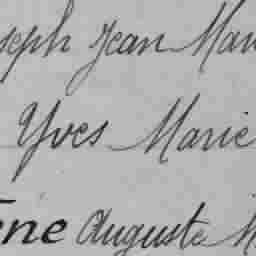 seph Jean Mar
Yves Marie
ène Auguste M